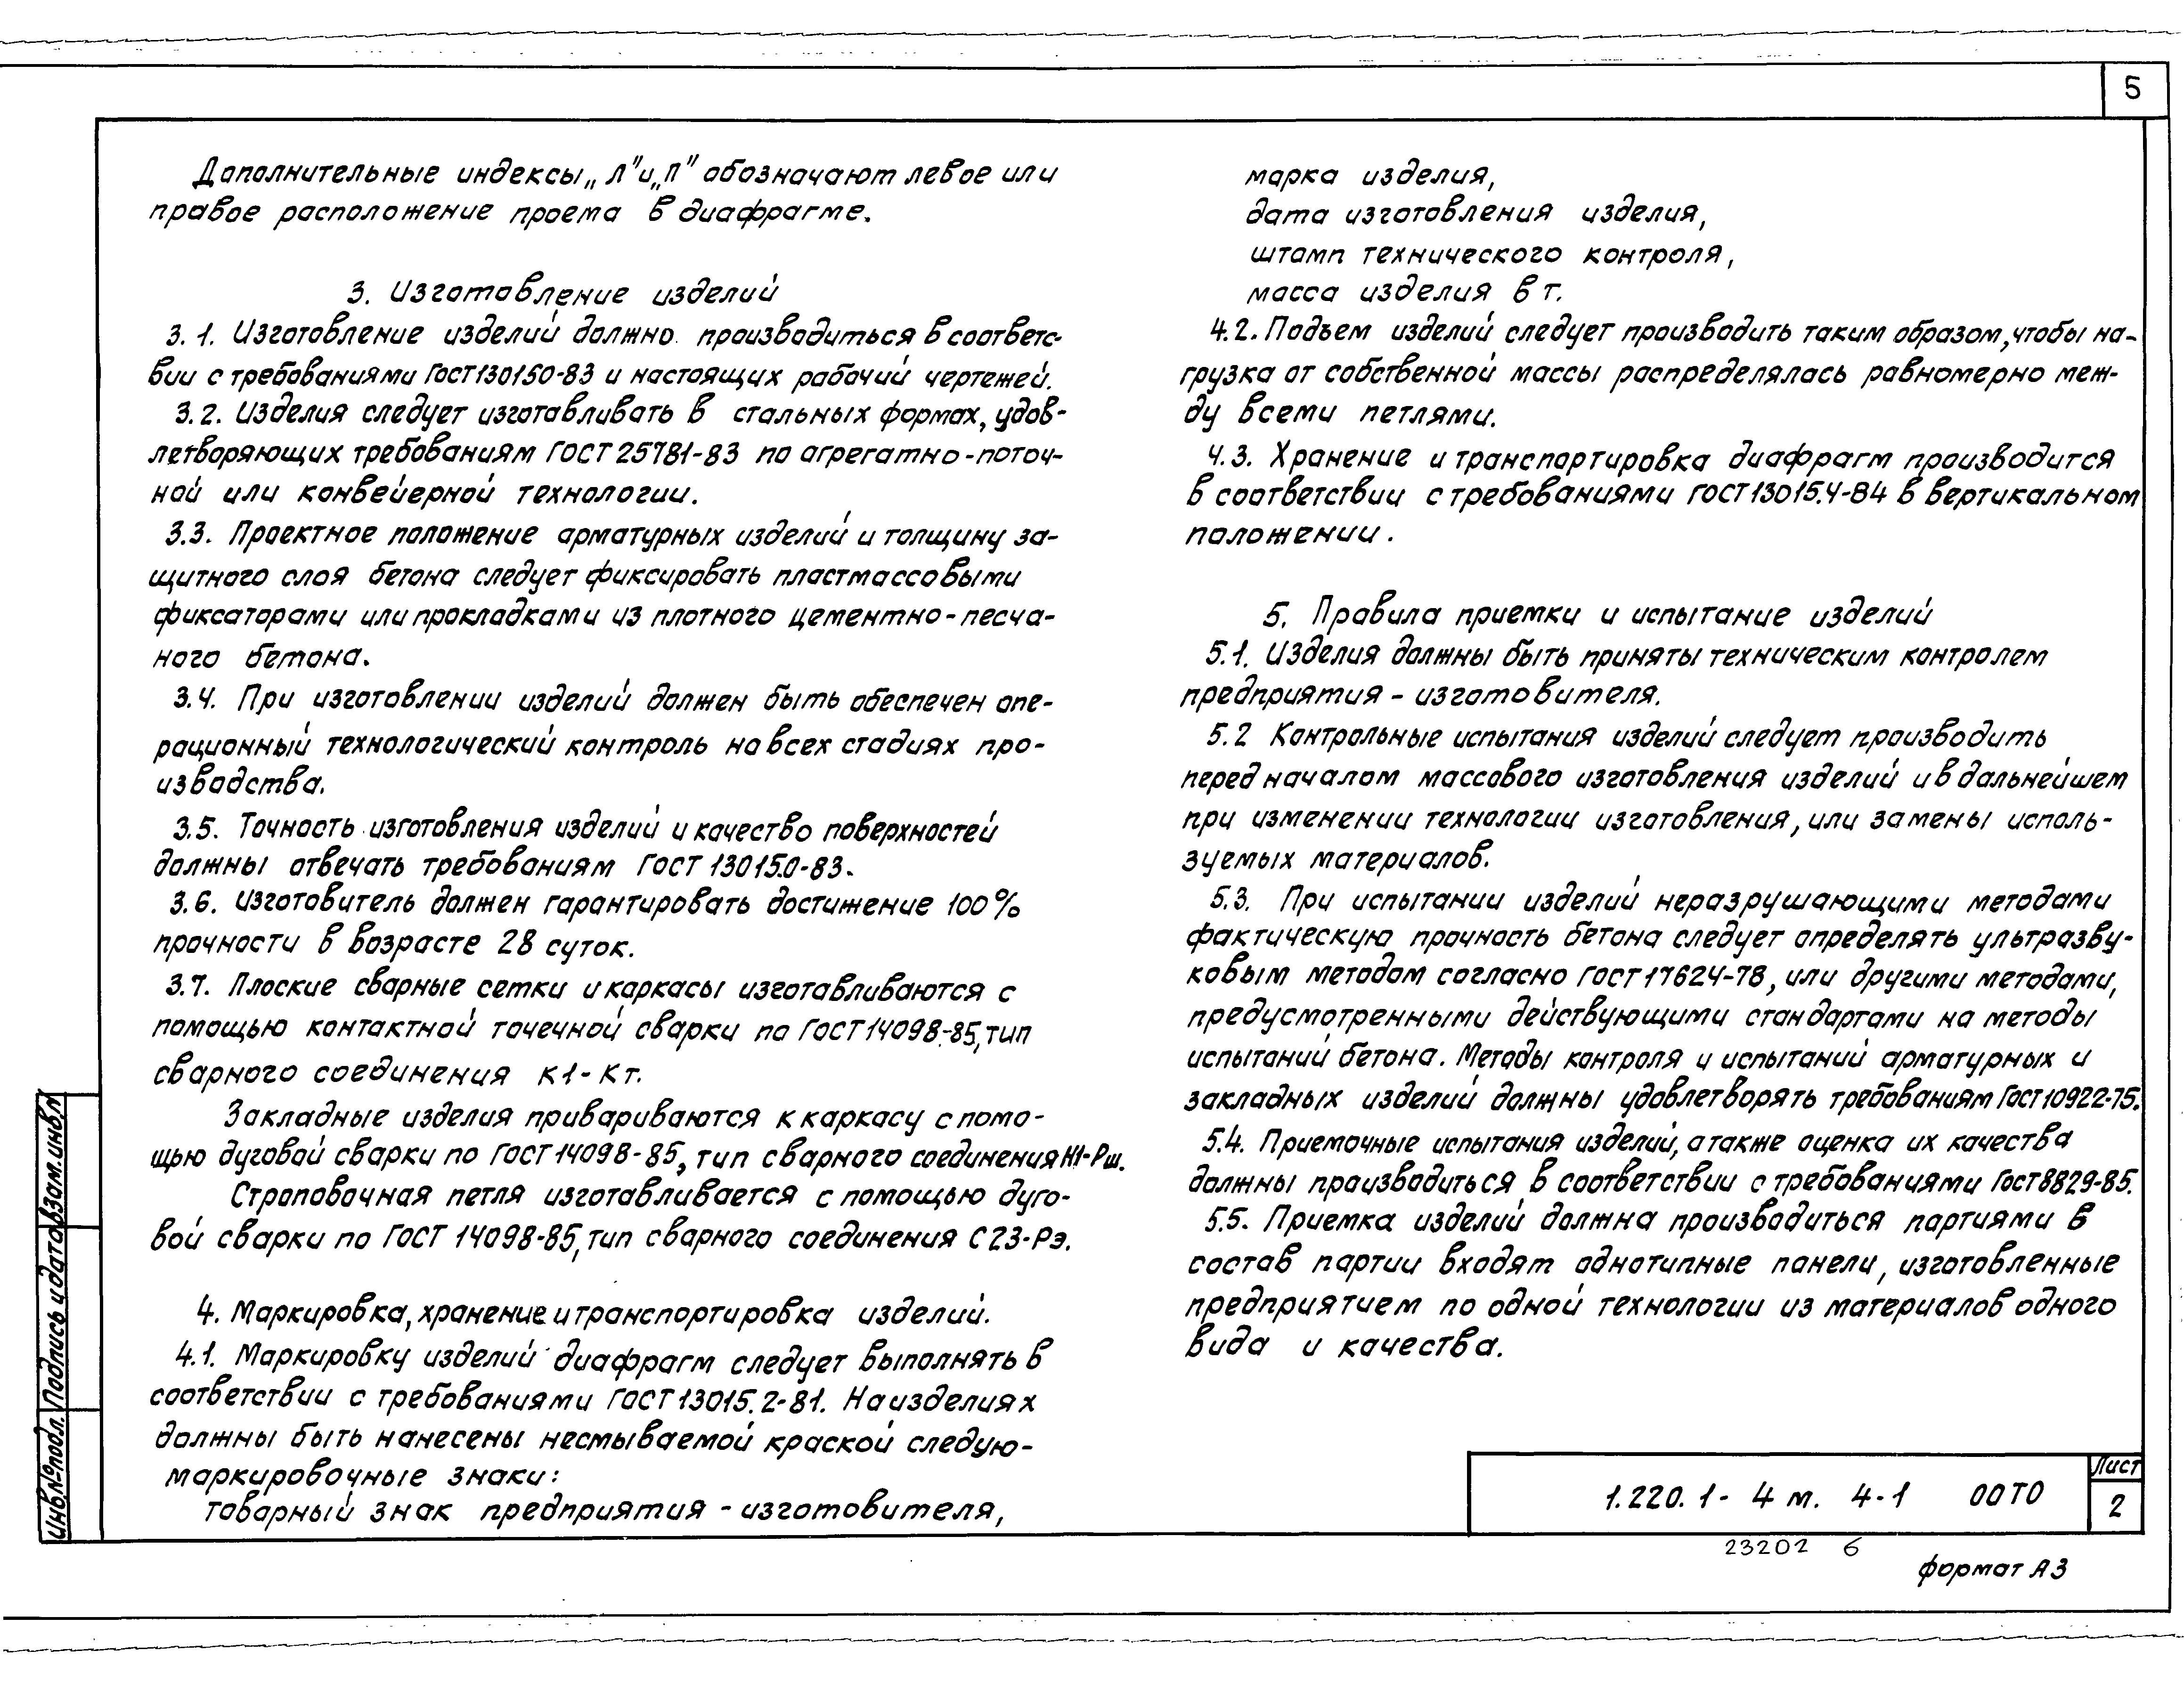 5
Дополнительные индексы „Л" и „П" обозначают левое или
правое расположение проема в диафрагме.
3. Изготовление изделий
3.1. Изготовление изделий должно производиться в соответс-
вии с требованиями ГОСТ 130150-83 и настоящих рабочий чертежей.
3.2. Изделия следует изготавливать в стальных формах, удов-
летворяющих требованиям ГОСТ 25781-83 по агрегатно-поточ-
ной или конвейерной технологии.
3.3. Проектное положение арматурных изделий и толщину за-
щитного слоя бетона следует фиксировать пластмассовыми
фиксаторами или прокладками из плотного цементно-песча-
ного бетона.
3.4. При изготовлении изделий должен быть обеспечен опе-
рационный технологический контроль на всех стадиях про-
изводства.
3.5. Точность изготовления изделий и качество поверхностей
должны отвечать требованиям ГОСТ 13015.0-83.
3.6. Изготовитель должен гарантировать достижение 100%
прочности в возрасте 28 суток.
3.7. Плоские сварные сетки и каркасы изготавливаются с
помощью контактной точечной сварки по ГОСТ 14098-85, тип
сварного соединения К1-Кт.
Закладные изделия привариваются к каркасу с помо-
щью дуговой сварки по ГОСТ 14098-85, тип сварного соединения Н1-Рш.
Строповочная петля изготавливается с помощью дуго-
вой сварки по ГОСТ 14098-85, тип сварного соединения С23-Рэ.
4. Маркировка, хранение и транспортировка изделий.
4.1. Маркировку изделий диафрагм следует выполнять в
соответствии с требованиями ГОСТ 13015.2-81. На изделиях
должны быть нанесены несмываемой краской следую-
маркировочные знаки:
товарный знак предприятия - изготовителя,
марка изделия,
дата изготовления изделия,
штамп технического контроля,
масса изделия в т.
4.2. Подъем изделий следует производить таким образом, чтобы на-
грузка от собственной массы распределялась равномерно меж-
ду всеми петлями.
4.3. Хранение и транспортировка диафрагм производится
в соответствии с требованиями ГОСТ 13015.4-84 в вертикальном
положении.
5. Правила приемки и испытание изделий
5.1. Изделия должны быть приняты техническим контролем
предприятия - изготовителя.
5.2 Контрольные испытания изделий следует производить
перед началом массового изготовления изделий и в дальнейшем
при изменении технологии изготовления, или замены исполь-
зуемых материалов.
5.3. При испытании изделий неразрушающими методами
фактическую прочность бетона следует определять ультразву-
ковым методом согласно ГОСТ 17624-78, или другими методами,
предусмотренными действующими стандартами на методы
испытаний бетона. Методы контроля и испытаний арматурных и
закладных изделий должны удовлетворять требованиям ГОСТ 10922-75.
5.4. Приемочные испытания изделий, а также оценка их качества
должны производиться в соответствии с требованиями ГОСТ 8829-85.
5.5. Приемка изделий должна производиться партиями в
состав партии входят однотипные панели, изготовленные
предприятием по одной технологии из материалов одного
вида и качества.
Инв.№подл. Подпись и дата Взам.инв.№
1.220.1-4 м. 4-1 00ТО
Лист
2
23202 6
формат А3